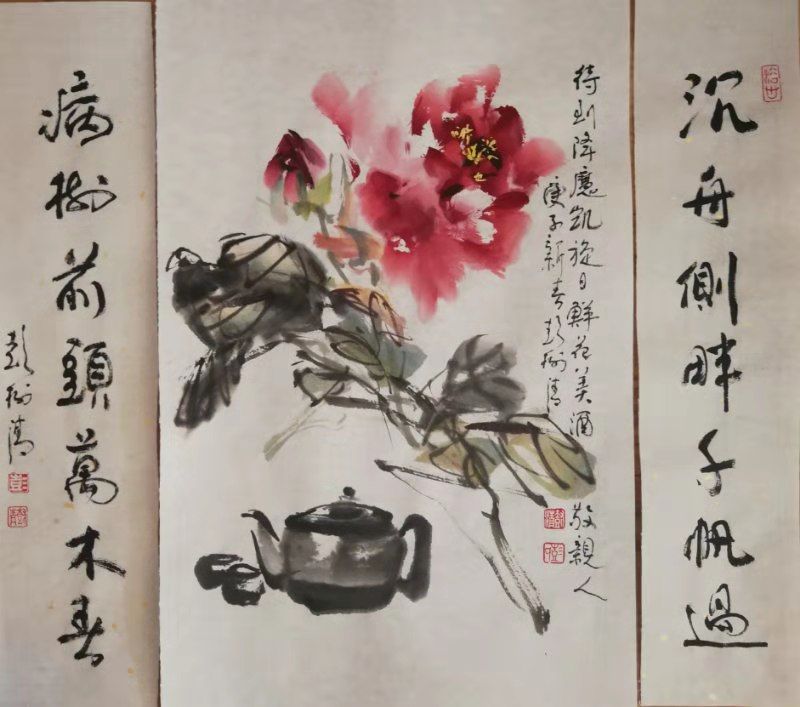 沉舟側畔千帆過
待到降魔凱旋日鮮花美酒敬親人
庚子新春彭树
病树前頭萬木春
彭树